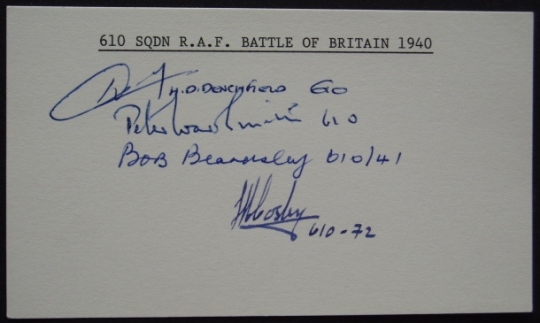 610 SQDN R.A.F. BATTLE OF BRITAIN 1940
H.D. DENCHFIELD 610
Peter Ward Smith 610
BOB Beardsley 610/41
Cosby
610-72